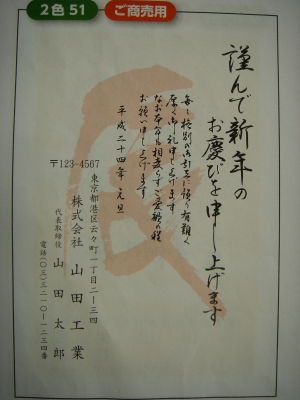 2色 51
ご商売用
謹んで新年の
お慶びを申し上げます
毎々格別のお引立に預り有難く
厚く御礼申し上げます
なお本年も相変らずご愛顧の程
お願い申し上げます
平成二十四年 元旦
〒123-4567
東京都港区云々町一丁目二―三四
株式会社 山田工業
代表取締役 山田太郎
電話(〇三)三二一〇―一二三四番